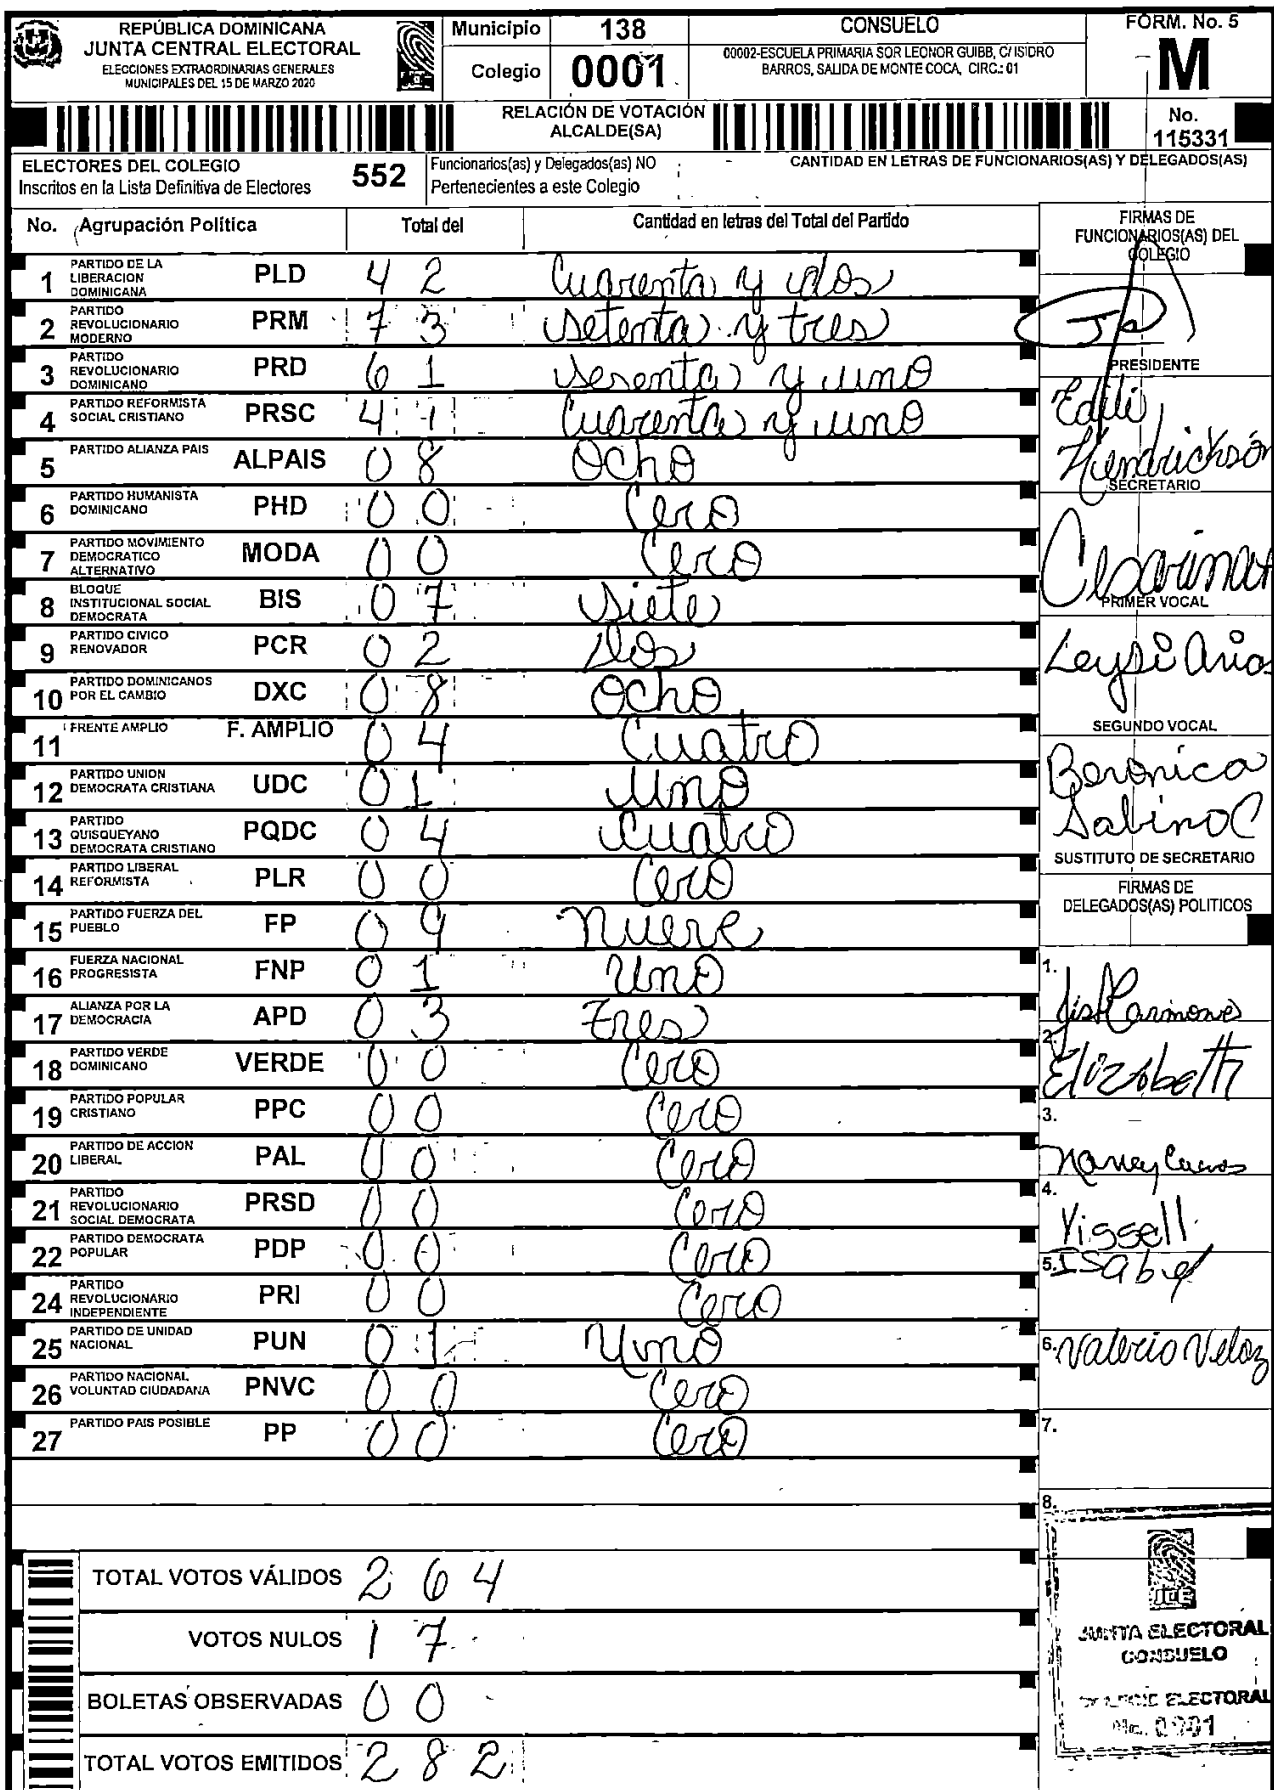 REPÚBLICA DOMINICANA
JUNTA CENTRAL ELECTORAL
ELECCIONES EXTRAORDINARIAS GENERALES
MUNICIPALES DEL 15 DE MARZO 2020
Municipio 138 CONSUELO
Colegio 0001 00002-ESCUELA PRIMARIA SOR LEONOR GUIBB, C/ ISIDRO
BARROS, SALIDA DE MONTE COCA, CIRC.: 01
FORM. No. 5
M
RELACIÓN DE VOTACIÓN
ALCALDE(SA)
No.
115331
ELECTORES DEL COLEGIO
Inscritos en la Lista Definitiva de Electores 552
Funcionarios(as) y Delegados(as) NO
Pertenecientes a este Colegio
CANTIDAD EN LETRAS DE FUNCIONARIOS(AS) Y DELEGADOS(AS)
No. Agrupación Política Total del Cantidad en letras del Total del Partido
1 PARTIDO DE LA LIBERACION DOMINICANA PLD 4 2 Cuarenta y dos
2 PARTIDO REVOLUCIONARIO MODERNO PRM 7 3 setenta y tres
3 PARTIDO REVOLUCIONARIO DOMINICANO PRD 6 1 sesenta y uno
4 PARTIDO REFORMISTA SOCIAL CRISTIANO PRSC 4 1 Cuarenta y uno
5 PARTIDO ALIANZA PAIS ALPAIS 0 8 Ocho
6 PARTIDO HUMANISTA DOMINICANO PHD 0 0 Cero
7 PARTIDO MOVIMIENTO DEMOCRATICO ALTERNATIVO MODA 0 0 Cero
8 BLOQUE INSTITUCIONAL SOCIAL DEMOCRATA BIS 0 7 Siete
9 PARTIDO CIVICO RENOVADOR PCR 0 2 Dos
10 PARTIDO DOMINICANOS POR EL CAMBIO DXC 0 8 Ocho
11 FRENTE AMPLIO F. AMPLIO 0 4 Cuatro
12 PARTIDO UNION DEMOCRATA CRISTIANA UDC 0 1 Uno
13 PARTIDO QUISQUEYANO DEMOCRATA CRISTIANO PQDC 0 4 Cuatro
14 PARTIDO LIBERAL REFORMISTA PLR 0 0 Cero
15 PARTIDO FUERZA DEL PUEBLO FP 0 9 Nueve
16 FUERZA NACIONAL PROGRESISTA FNP 0 1 Uno
17 ALIANZA POR LA DEMOCRACIA APD 0 3 Tres
18 PARTIDO VERDE DOMINICANO VERDE 0 0 Cero
19 PARTIDO POPULAR CRISTIANO PPC 0 0 Cero
20 PARTIDO DE ACCION LIBERAL PAL 0 0 Cero
21 PARTIDO REVOLUCIONARIO SOCIAL DEMOCRATA PRSD 0 0 Cero
22 PARTIDO DEMOCRATA POPULAR PDP 0 0 Cero
24 PARTIDO REVOLUCIONARIO INDEPENDIENTE PRI 0 0 Cero
25 PARTIDO DE UNIDAD NACIONAL PUN 0 1 Uno
26 PARTIDO NACIONAL VOLUNTAD CIUDADANA PNVC 0 0 Cero
27 PARTIDO PAIS POSIBLE PP 0 0 Cero
TOTAL VOTOS VÁLIDOS 2 6 4
VOTOS NULOS 1 7
BOLETAS OBSERVADAS 0 0
TOTAL VOTOS EMITIDOS 2 8 2
FIRMAS DE
FUNCIONARIOS(AS) DEL
COLEGIO
PRESIDENTE
Hendrickson
SECRETARIO
PRIMER VOCAL
Leysi
SEGUNDO VOCAL
Beronica
Sabino C
SUSTITUTO DE SECRETARIO
FIRMAS DE
DELEGADOS(AS) POLITICOS
1.
2. Elizabeth
3.
4. Yissell
5. Isabel
6. Valerio Veloz
7.
8.
JCE
JUNTA ELECTORAL
CONSUELO
COLEGIO ELECTORAL
No. 0001